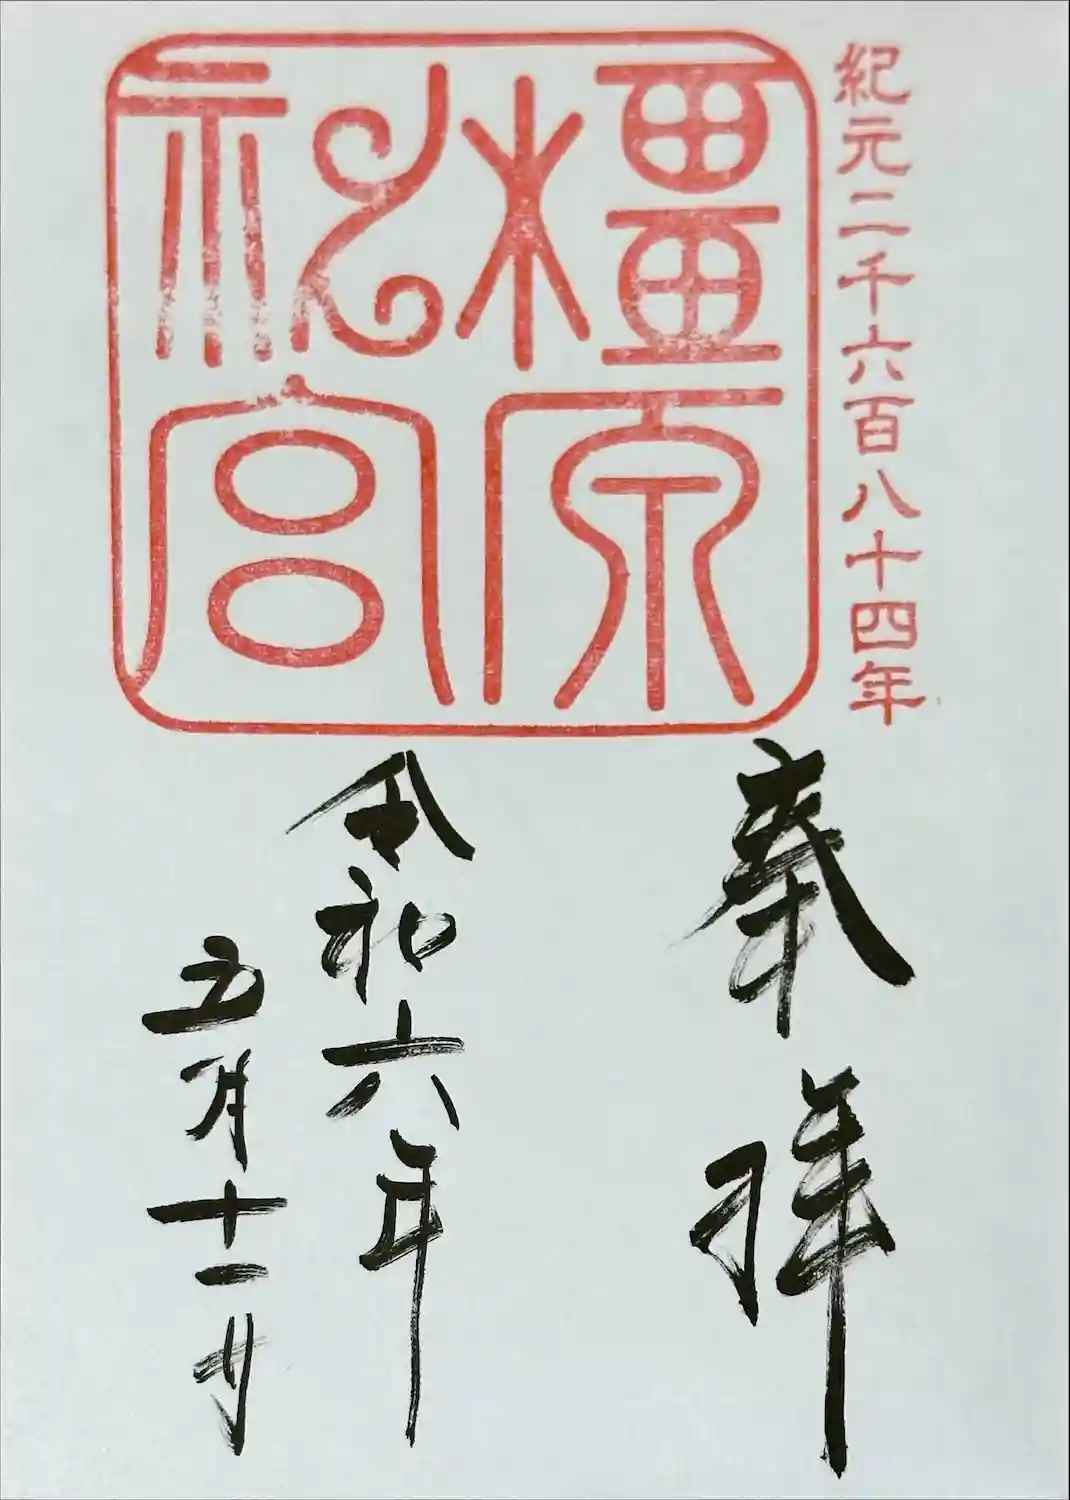 紀元二千六百八十四年
橿原
神宮
奉拝
令和六年
五月十一日